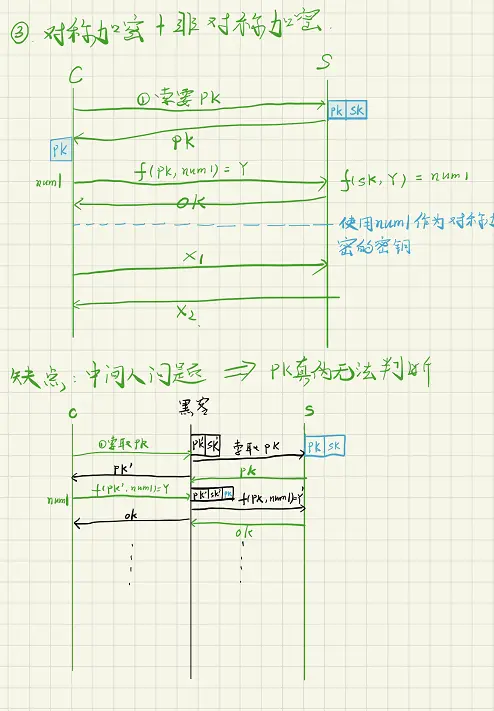 ③. 对称加密 + 非对称加密.
C
S
① 索要 PK
PK SK
PK
PK
num1
f(PK, num1) = Y
f(SK, Y) = num1
OK
使用num1作为对称加
密的密钥
X1
X2
缺点: 中间人问题 ⇒ PK真伪无法判断
C
黑客
S
①索取PK
PK' SK'
索取 PK
PK SK
PK'
PK
num1
f(PK', num1)=Y
PK' SK' PK
f(PK, num1)=Y'
OK
OK